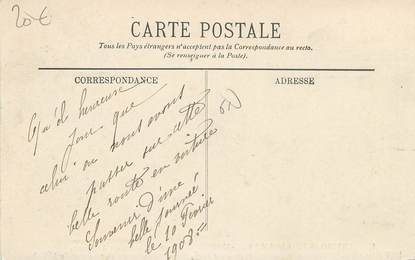 20€
CARTE POSTALE
Tous les Pays étrangers n'acceptent pas la Correspondance au recto.
(Se renseigner à la Poste).
CORRESPONDANCE
ADRESSE
heureuse
jour que
celui où nous avons
passer sur cette
belle route en voiture
Souvenir d'une
belle journée
le 10 Février
1908